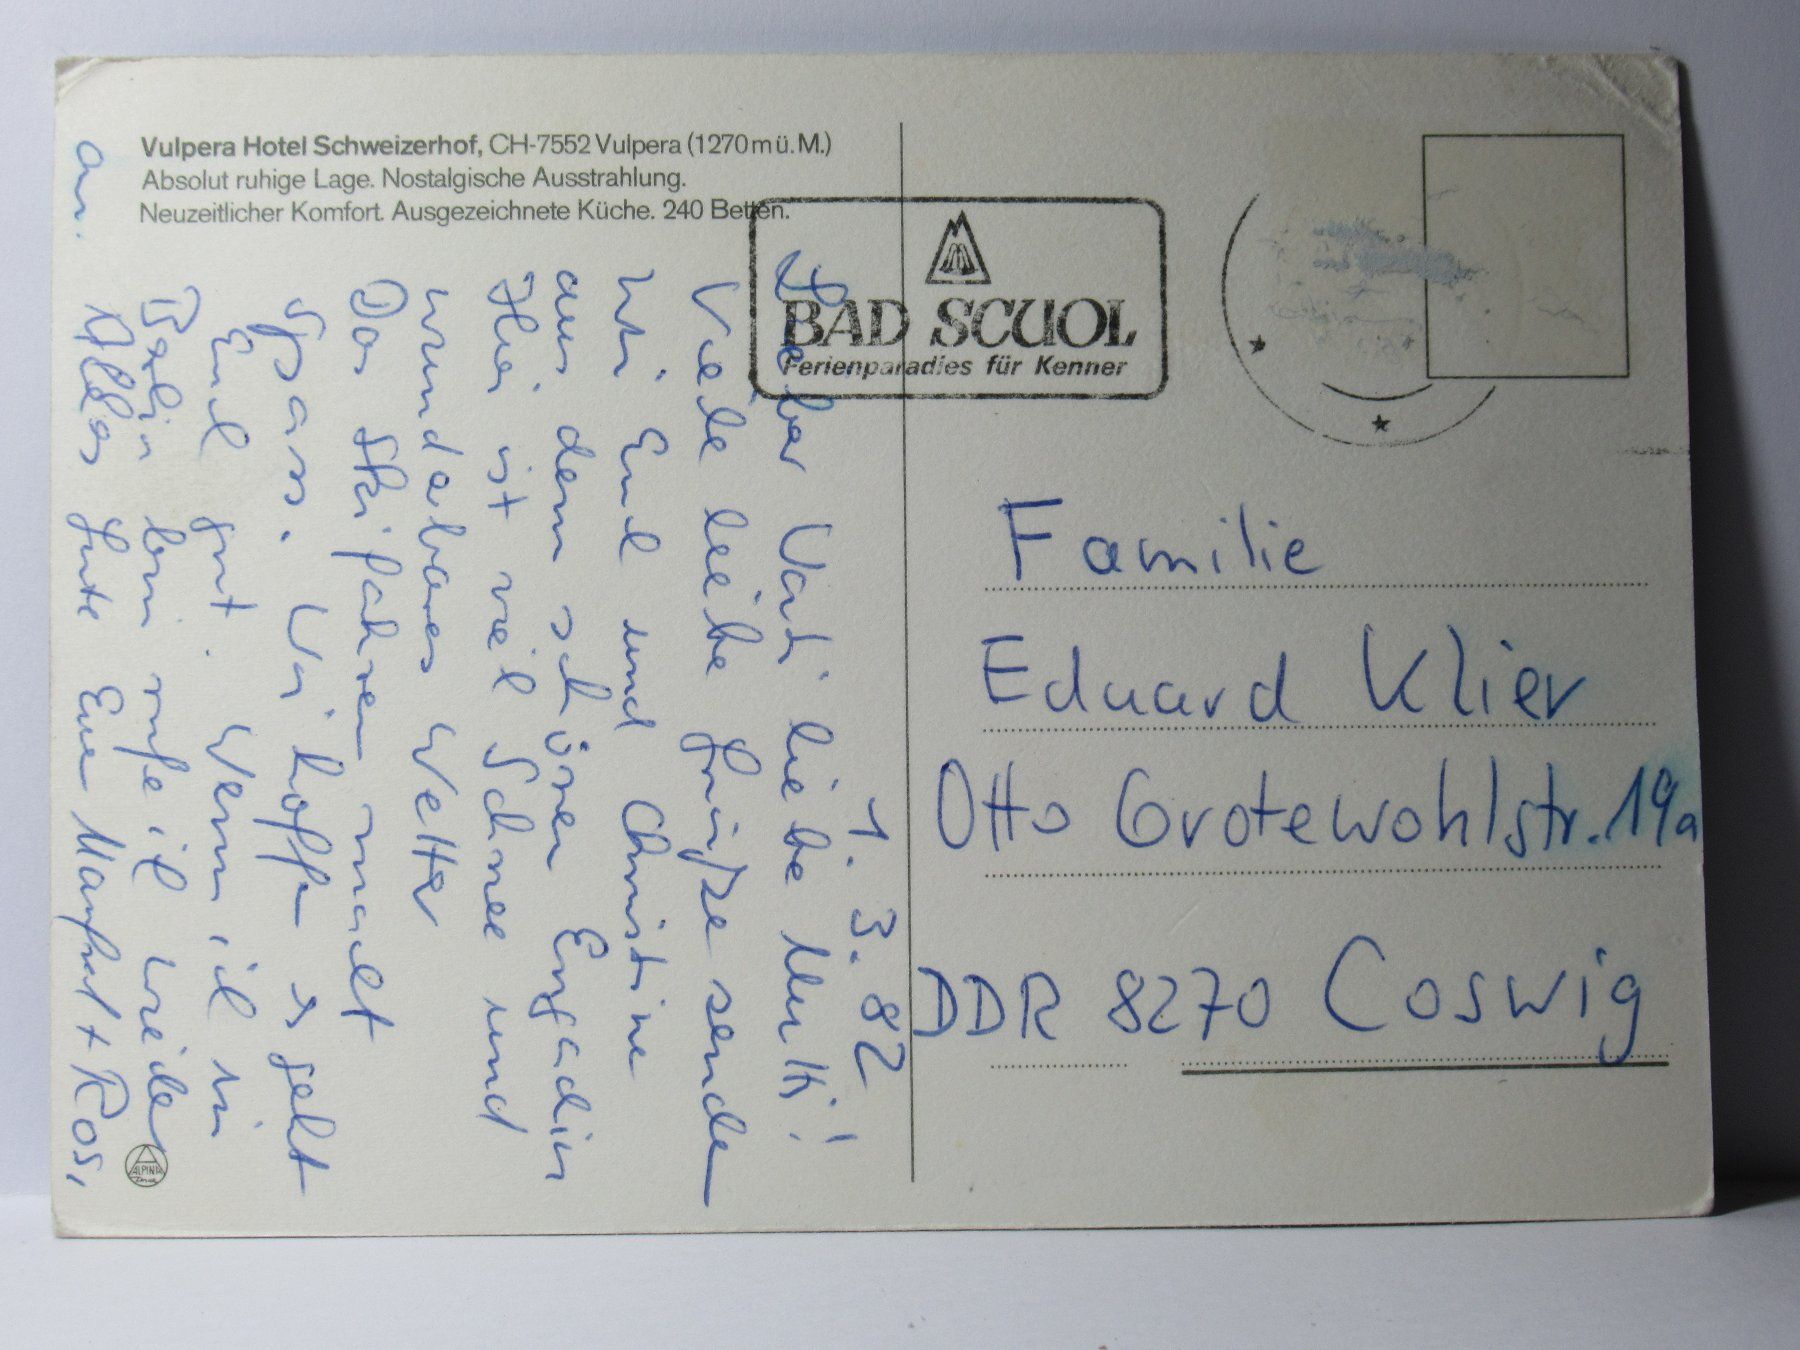 Vulpera Hotel Schweizerhof, CH-7552 Vulpera (1270 m ü. M.)
Absolut ruhige Lage. Nostalgische Ausstrahlung.
Neuzeitlicher Komfort. Ausgezeichnete Küche. 240 Betten.
BAD SCUOL
Ferienparadies für Kenner
1. 3. 82
Lieber Vati liebe Mutti!
Viele liebe Grüsse senden
wir Euch und Christine
aus dem schönen Engadin
Hier ist viel Schnee und
wunderbares Wetter
Das Skifahren macht
Spass. Wir hoffen es geht
Euch gut. Wenn ich in
Berlin bin rufe ich wieder
an.
Alles Gute Eure Manfred + Rosi
Familie
Eduard Klier
Otto Grotewohlstr. 19a
DDR 8270 Coswig
ALPINIA